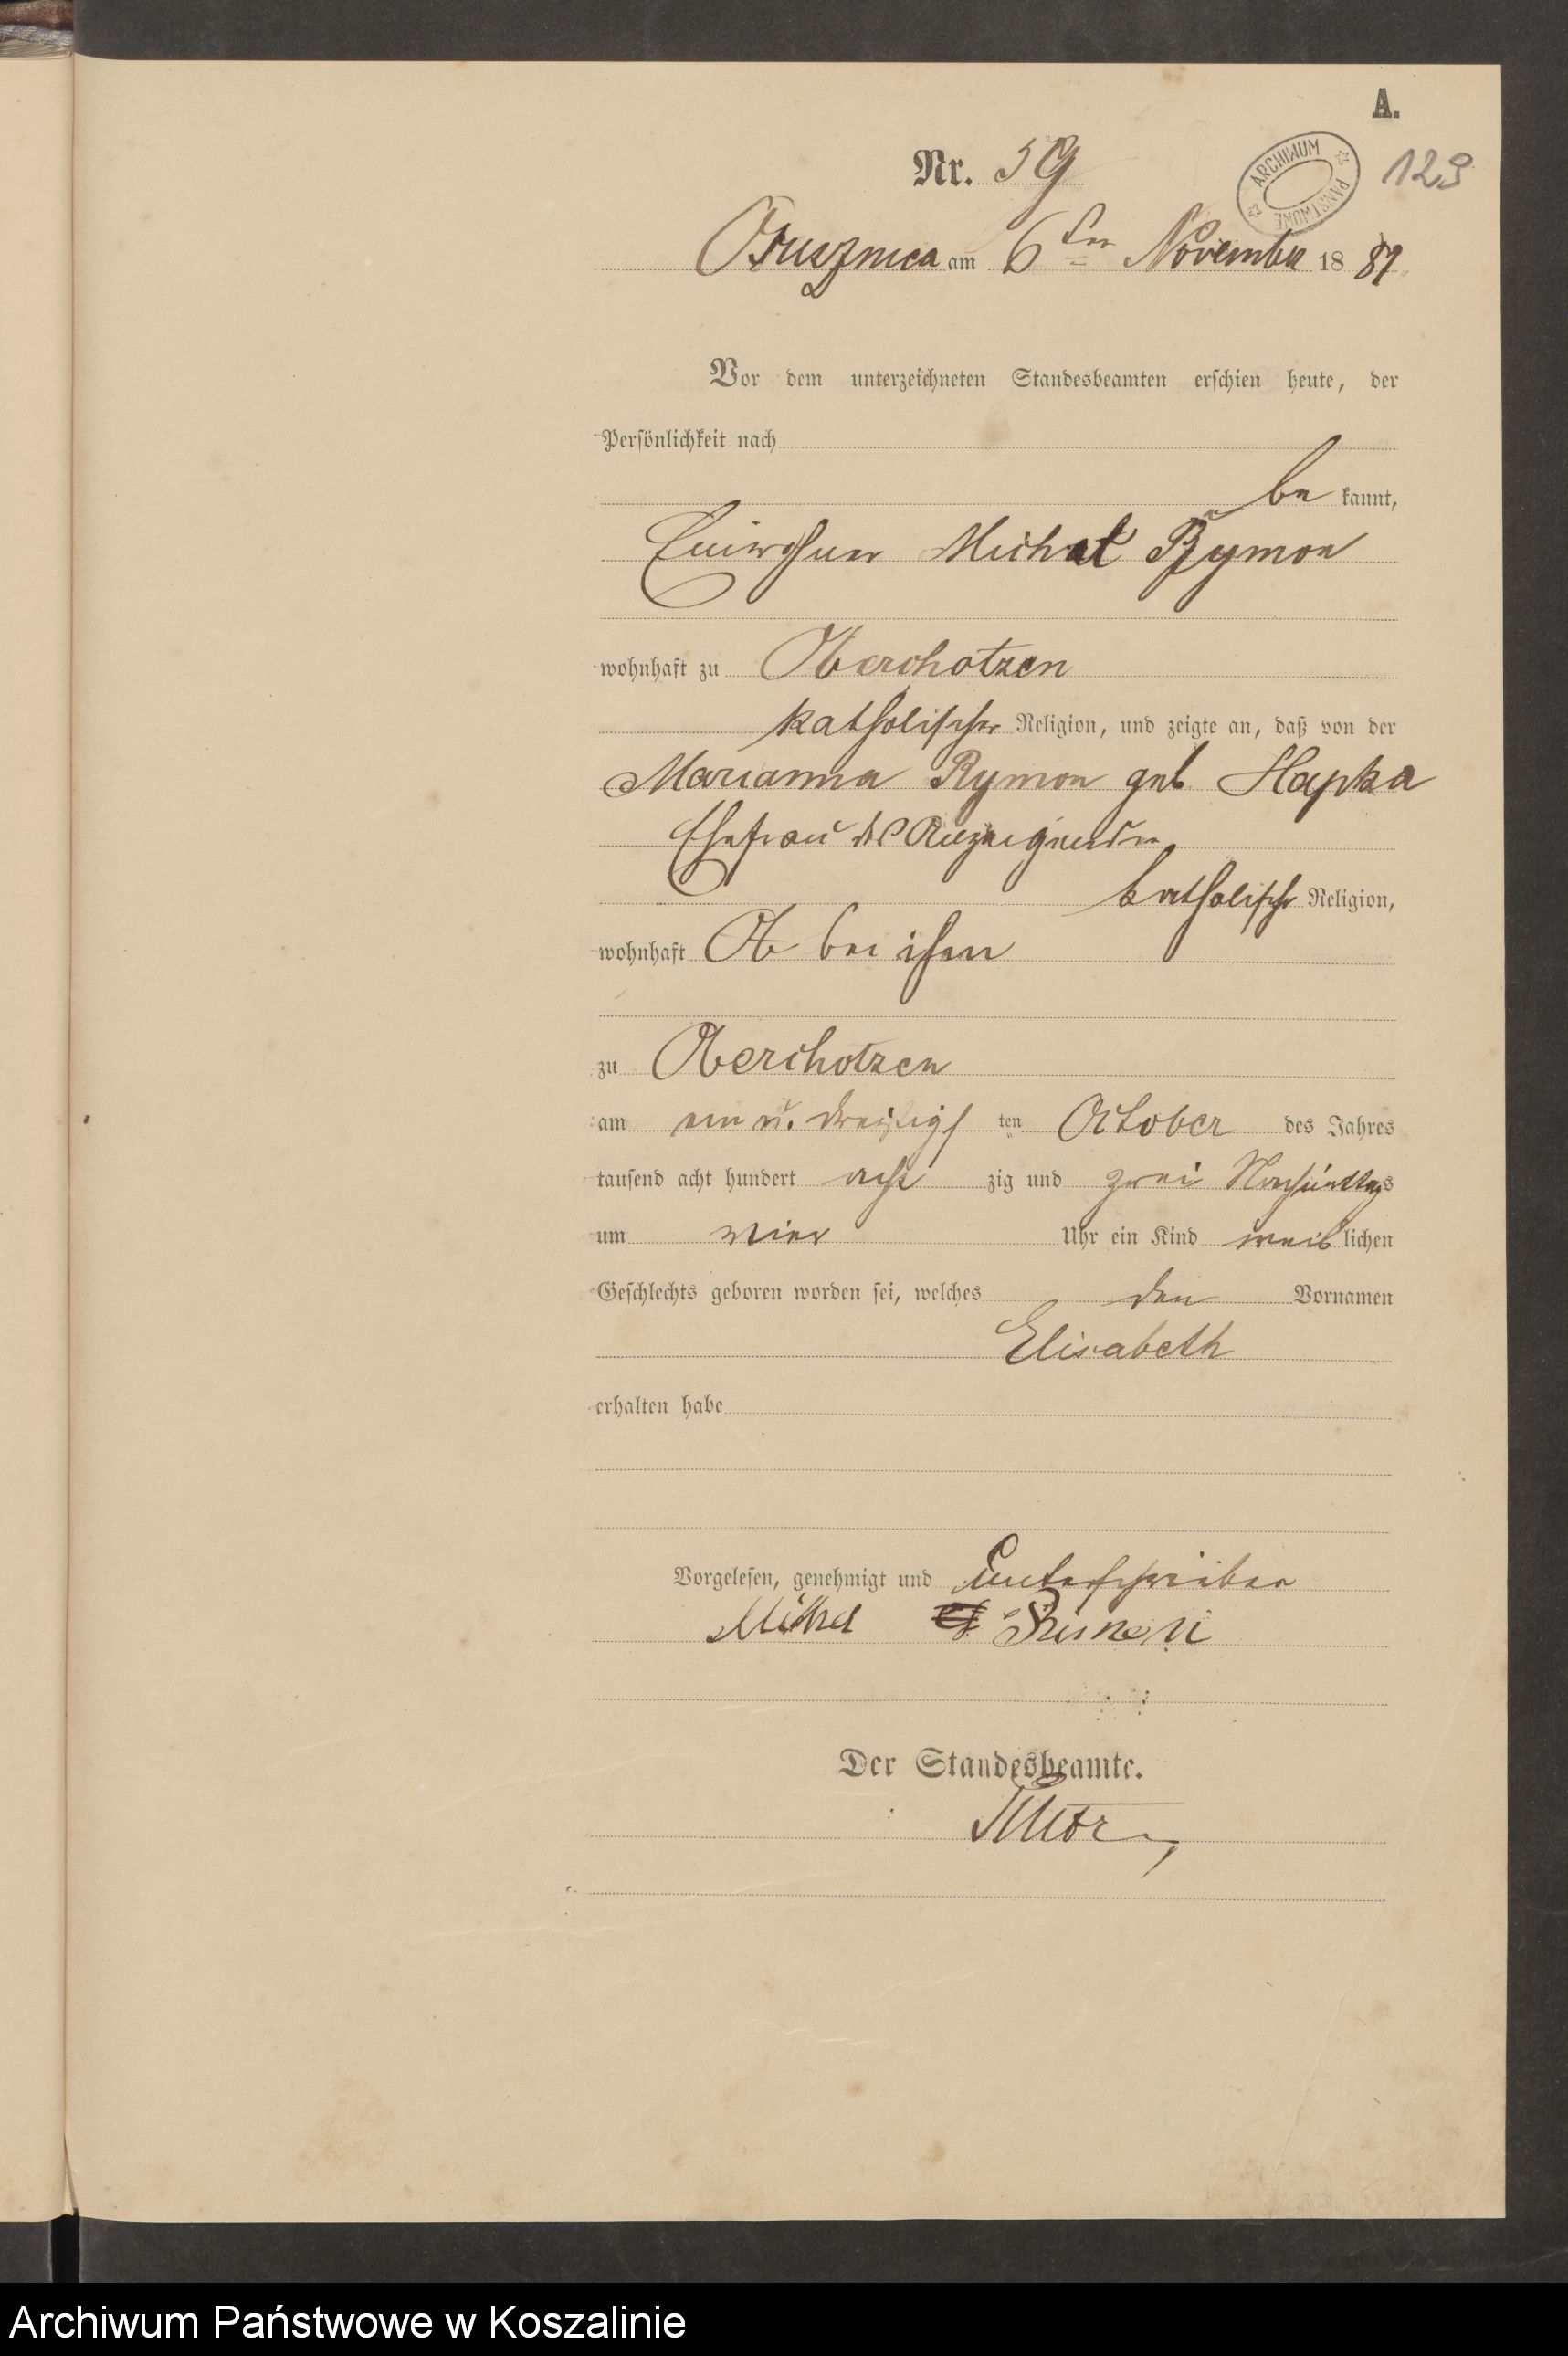 A.
Nr. 59
ARCHIWUM PAŃSTWOWE
123
Oslusznica am 6ten November 1882
Vor dem unterzeichneten Standesbeamten erschien heute, der
Persönlichkeit nach
be kannt,
Einwohner Michal Rymon
wohnhaft zu Oberchotzen
katholischer Religion, und zeigte an, daß von der
Marianna Rymon geb. Hapka
Ehefrau des Anzeigenden
katholischer Religion,
wohnhaft bei ihm
zu Oberchotzen
am ein u. dreißigs ten October des Jahres
tausend acht hundert acht zig und zwei Nachmittags
um vier Uhr ein Kind weib lichen
Geschlechts geboren worden sei, welches den Vornamen
Elisabeth
erhalten habe
Vorgelesen, genehmigt und unterschrieben
Michel
Der Standesbeamte.
Archiwum Państwowe w Koszalinie